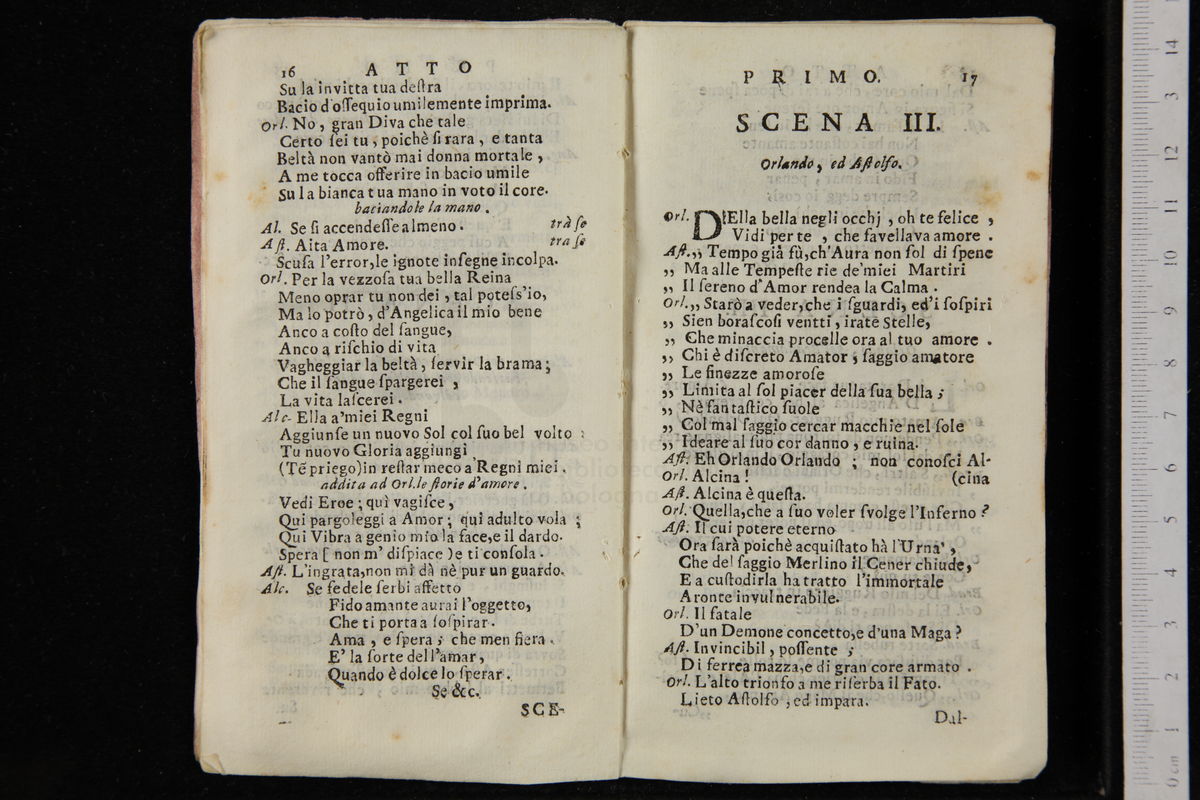 16 ATTO
Su la invitta tua deſtra
Bacio d'oſſequio umilemente imprima.
Orl. No, gran Diva che tale
Certo ſei tu, poichè ſi rara, e tanta
Beltà non vantò mai donna mortale,
A me tocca offerire in bacio umile
Su la bianca tua mano in voto il core.
baciandole la mano.
Al. Se ſi accendeſſe almeno. trà ſe
Aſt. Aita Amore. tra ſe
Scuſa l'error, le ignote inſegne incolpa.
Orl. Per la vezzoſa tua bella Reina
Meno oprar tu non dei, tal poteſs'io,
Ma lo potrò, d'Angelica il mio bene
Anco a coſto del ſangue,
Anco a riſchio di vita
Vagheggiar la beltà, ſervir la brama;
Che il ſangue ſpargerei,
La vita laſcerei.
Alc. Ella a'miei Regni
Aggiunſe un nuovo Sol col ſuo bel volto:
Tu nuovo Gloria aggiungi
(Te priego) in reſtar meco a'Regni miei.
addita ad Orl. le ſtorie d'amore.
Vedi Eroe; quì vagiſce,
Qui pargoleggi a Amor; quì adulto vola;
Qui Vibra a genio mio la face, e il dardo.
Spera [ non m' diſpiace ) e ti conſola.
Aſt. L'ingrata, non mi dà nè pur un guardo.
Alc. Se fedele ſerbi affetto
Fido amante aurai l'oggetto,
Che ti porta a ſoſpirar.
Ama, e ſpera; che men fiera
E' la ſorte dell'amar,
Quando è dolce lo ſperar.
Se &c.
SCE-
PRIMO. 17
SCENA III.
Orlando, ed Aſtolfo.
Orl. DElla bella negli occhj, oh te felice,
Vidi per te, che favellava amore.
Aſt. ,, Tempo già fù, ch'Aura non ſol di ſpene
,, Ma alle Tempeſte rie de'miei Martiri
,, Il ſereno d'Amor rendea la Calma.
Orl. ,, Starò a veder, che i ſguardi, ed'i ſoſpiri
,, Sien boraſcoſi ventti, irate Stelle,
,, Che minaccia procelle ora al tuo amore.
,, Chi è diſcreto Amator; ſaggio amatore
,, Le finezze amoroſe
,, Limita al ſol piacer della ſua bella;
,, Nè fantaſtico ſuole
,, Col mal ſaggio cercar macchie nel ſole
,, Ideare al ſuo cor danno, e ruina.
Aſt. Eh Orlando Orlando; non conoſci Al-
Orl. Alcina! (cina
Aſt. Alcina è queſta.
Orl. Quella, che a ſuo voler ſvolge l'Inferno?
Aſt. Il cui potere eterno
Ora ſarà poichè acquiſtato hà l'Urna',
Che del ſaggio Merlino il Cener chiude,
E a cuſtodirla ha tratto l'immortale
Aronte invulnerabile.
Orl. Il fatale
D'un Demone concetto, e d'una Maga?
Aſt. Invincibil, poſſente;
Di ferrea mazza, e di gran core armato.
Orl. L'alto trionfo a me riſerba il Fato.
Lieto Aſtolfo, ed impara.
Dal-